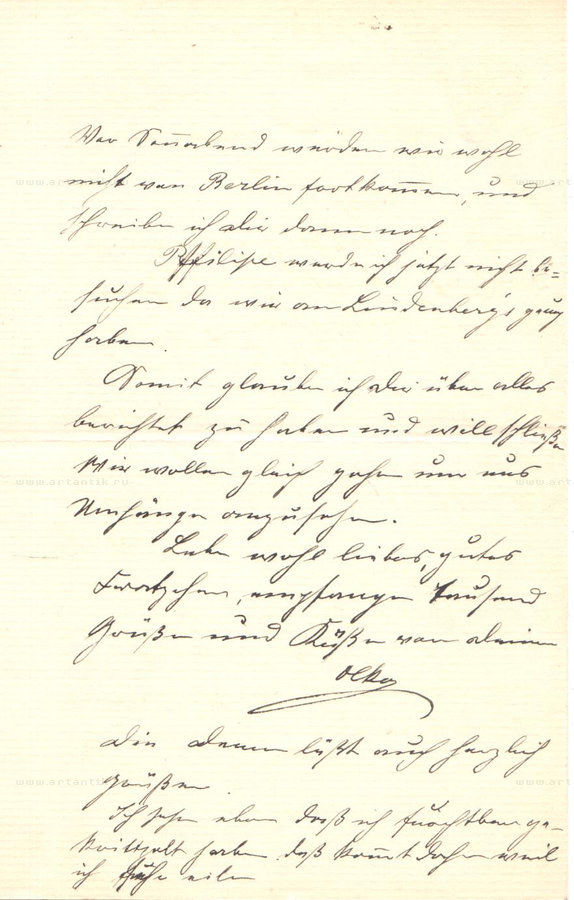 Vor Sonnabend werden wir wohl
nicht von Berlin fortkommen, und
schreibe ich dir dann noch.
werde ich jetzt nicht be=
suchen da wir an Lindenberg's genug
haben.
Somit glaube ich dir über alles
berichtet zu haben und will schließen
Wir wollen gleich gehen um uns
Umhänge anzusehen.
Lebe wohl liebes, gutes
empfange tausend
Grüße und Küße von deiner
Olka
läßt auch herzlich
grüßen.
Ich sehe eben daß ich furchtbar ge-
kritzelt habe daß kommt daher weil
ich eile
www.artantik.ru
www.artantik.ru
www.artantik.ru